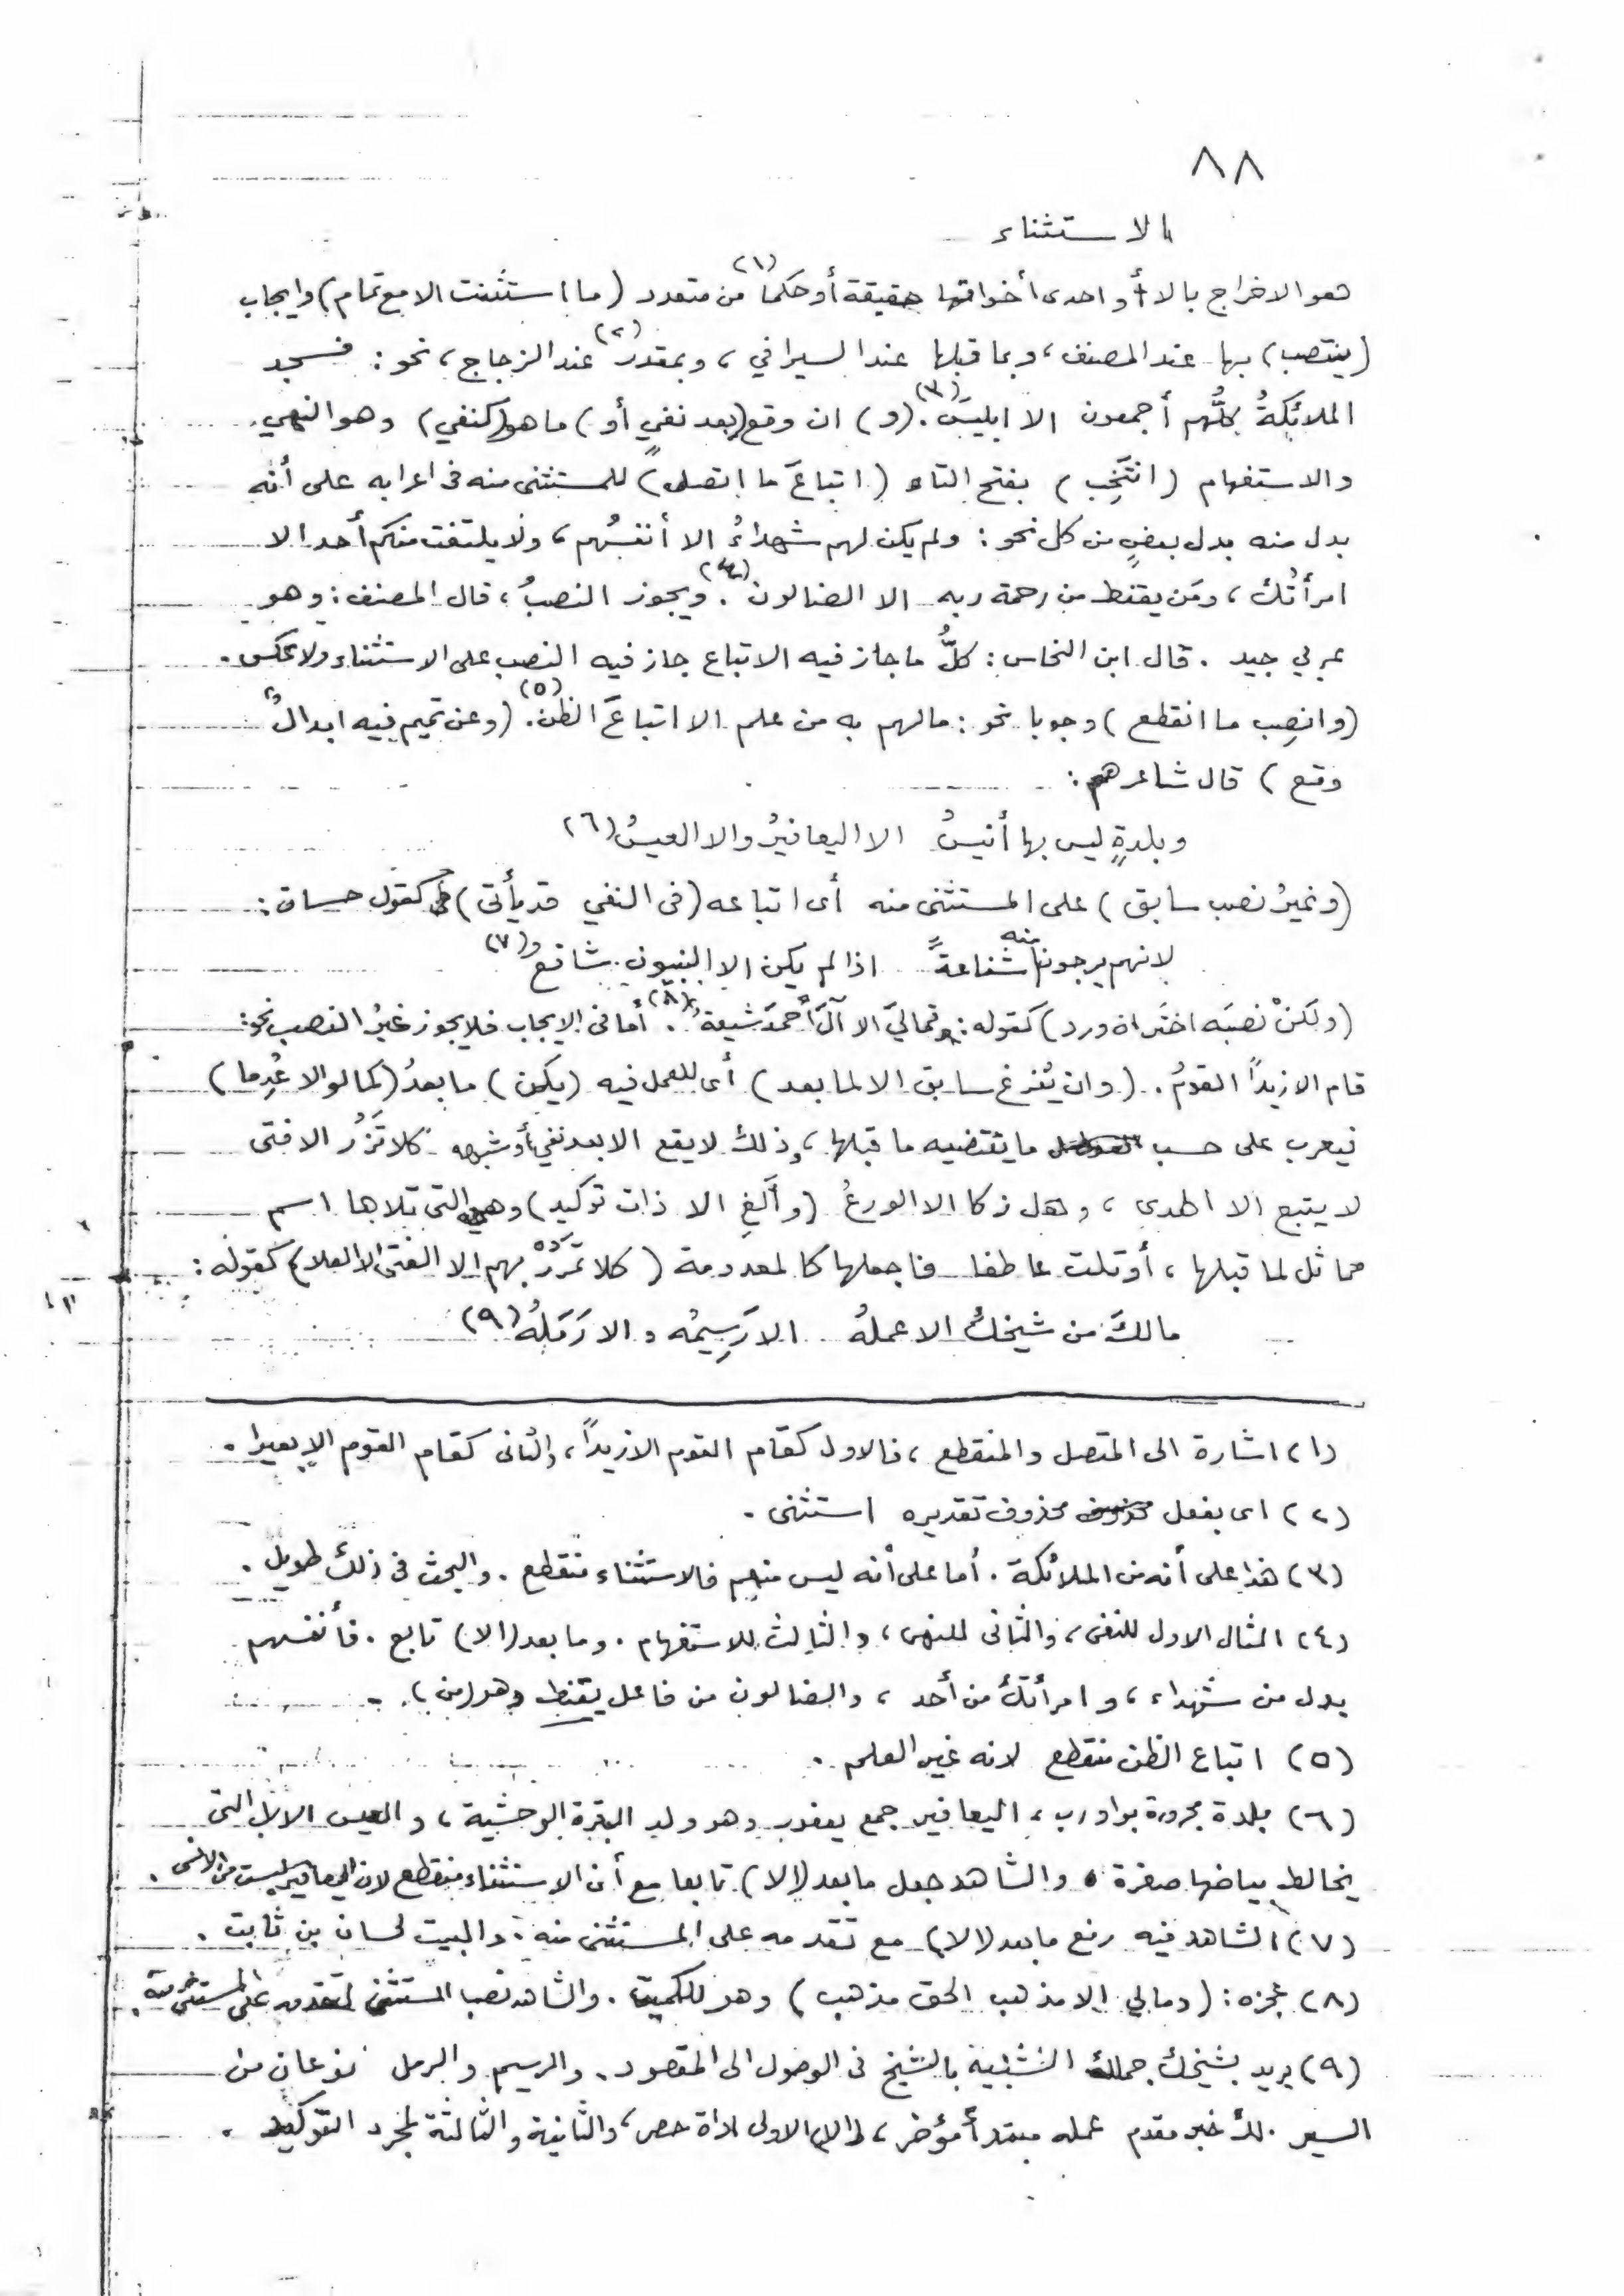 ٨٨
الاستثناء
هو الاخراج بالا أو احدى أخواتها حقيقة أو حكما(١) من متعدد (ما استثنت الا مع تمام) وايجاب
(ينتصب) بها عند المصنف، وبما قبلها عند السيرافي، وبمقدر(٢) عند الزجاج، نحو: فسجد
الملائكةُ كلُّهم أجمعون الا ابليسَ(٣). (و) ان وقع (بعد نفيٍ أو) ما هو (كنفي) وهو النهي
والاستفهام (انتُخِب) بفتح التاء (اتباعَ ما اتصل) للمستثنى منه فى اعرابه على أنه
بدل منه بدل بعضٍ من كل نحو: ولم يكن لهم شهداءُ الا أنفسُهم، ولا يلتفت منكم أحد الا
امرأتُك، ومَن يقنط من رحمة ربه الا الضالون(٤). ويجوز النصبُ، قال المصنف: وهو
عربي جيد. قال ابن النحاس: كلُّ ما جاز فيه الاتباع جاز فيه النصب على الاستثناء ولا عكس.
(وانصِب ما انقطع) وجوبا نحو: ما لهم به من علم الا اتباعَ الظن(٥). (وعن تميم فيه ابدالٌ
وقع) قال شاعرهم:
وبلدةٍ ليس بها أنيسُ الا اليعافيرُ والا العيسُ(٦)
(وغيرُ نصب سابق) على المستثنى منه أى اتباعه (فى النفي قد يأتى) كقول حسان:
لانهم يرجون منه شفاعةً اذا لم يكن الا النبيون شافعُ(٧)
(ولكنْ نصبَه اختَر ان ورد) كقوله: وماليَ الا آلَ أحمدَ شيعةٌ(٨). أما فى الايجاب فلا يجوز غيرُ النصب نحو:
قام الا زيداً القومُ. (وان يُفرغ سابق الا لما بعد) أى للعمل فيه (يكن) ما بعدُ (كما لو الا عُدِما)
فيعرب على حسب ما يقتضيه ما قبلها، وذلك لا يقع الا بعد نفي أو شبهه كلا تَزُر الا فتى
لا يتبع الا الهدى، وهل زكا الا الورعُ (وألغِ الا ذات توكيد) وهى التى تلاها اسم
مماثل لما قبلها، أو تلت عاطفا فاجعلها كالمعدومة (كلا تمرُرْ بهم الا الفتى الا العلا) كقوله:
مالكَ من شيخكَ الا عملهُ الا رَسِيمُه والا رَمَلُهُ(٩)
(١) اشارة الى المتصل والمنقطع، فالاول كقام القوم الا زيداً، والثانى كقام القوم الا بعيرا.
(٢) اى بفعل محذوف تقديره استثنى.
(٣) هذا على أنه من الملائكة. أما على أنه ليس منهم فالاستثناء منقطع. والبحث فى ذلك طويل.
(٤) المثال الاول للنفى، والثانى للنهى، والثالث للاستفهام. وما بعد (الا) تابع. فأنفسهم
بدل من شهداء، وامرأتك من أحد، والضالون من فاعل يقنط وهو (من).
(٥) اتباع الظن منقطع لانه غير العلم.
(٦) بلدة مجرورة بواو رب، اليعافير جمع يعفور وهو ولد البقرة الوحشية، والعيس الابل التى
يخالط بياضها صفرة، والشاهد جعل ما بعد (الا) تابعا مع أن الاستثناء منقطع لان اليعافير ليست من الانس.
(٧) الشاهد فيه رفع ما بعد (الا) مع تقدمه على المستثنى منه. والبيت لحسان بن ثابت.
(٨) عجزه: (ومالي الا مذهب الحق مذهب) وهو للكميت. والشاهد نصب المستثنى لتقدمه على المستثنى منه.
(٩) يريد بشيخك جملك الشبيه بالشيخ فى الوصول الى المقصود. والرسيم والرمل نوعان من
السير. لك خبر مقدم عمله مبتدأ مؤخر، والا الاولى اداة حصر، والثانية والثالثة لمجرد التوكيد.